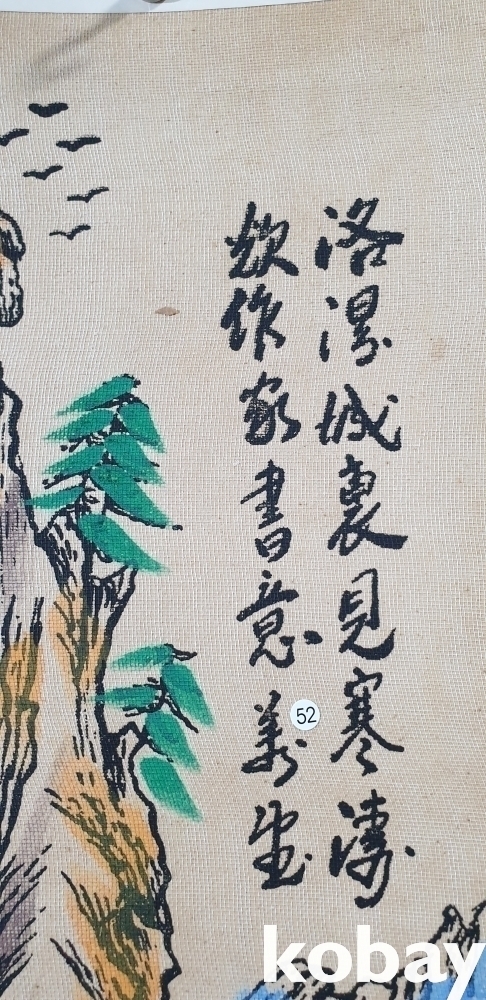 洛陽城裏見寒濤
欲作家書意萬
52
kobay